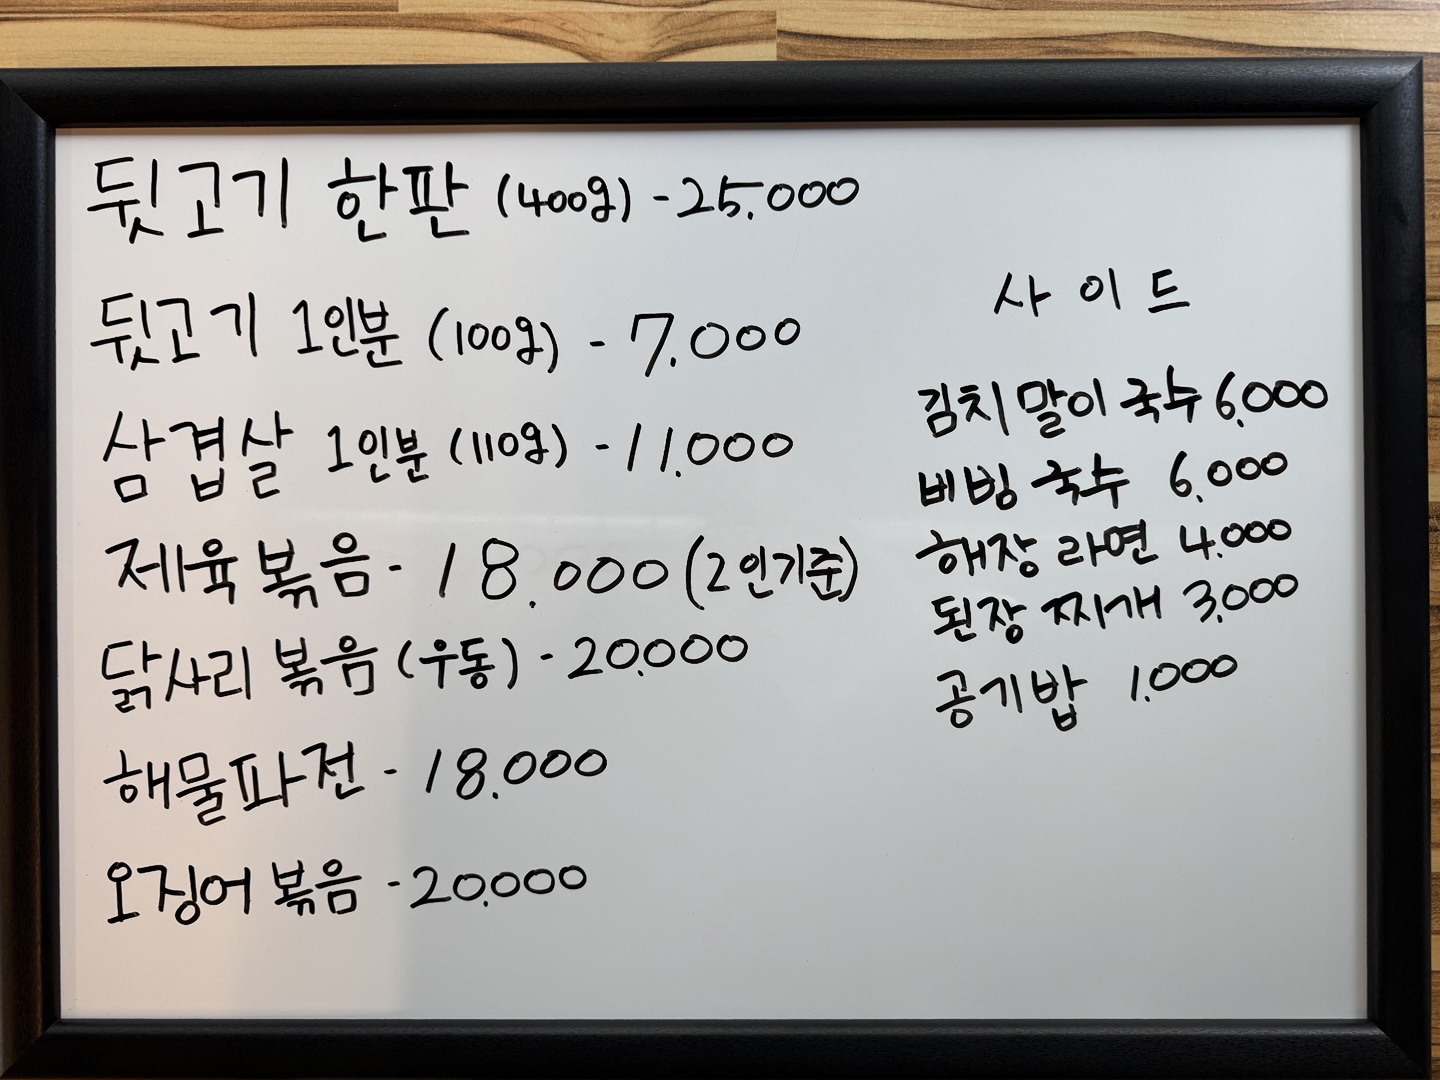 뒷고기 한판 (400g) - 25.000
뒷고기 1인분 (100g) - 7.000
삼겹살 1인분 (110g) - 11.000
제육볶음 - 18.000 (2인기준)
닭사리 볶음 (우동) - 20.000
해물파전 - 18.000
오징어 볶음 - 20.000
사이드
김치말이 국수 6.000
비빔 국수 6.000
해장 라면 4.000
된장 찌개 3.000
공기밥 1.000